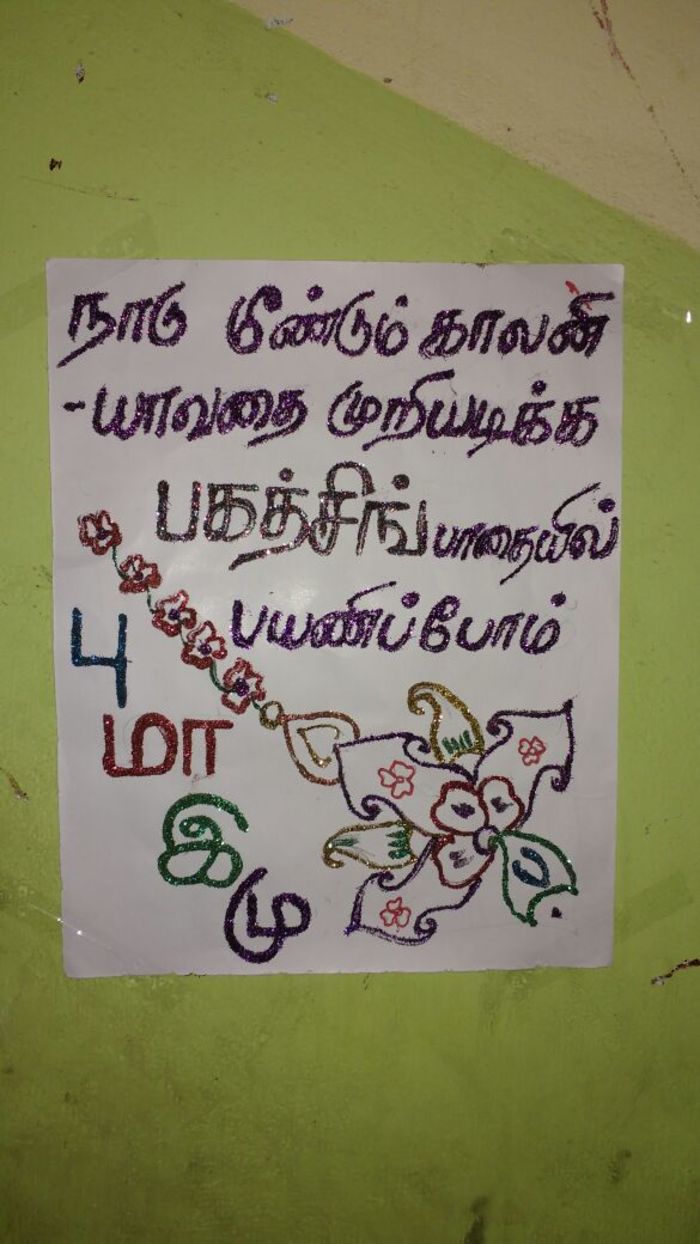 நாடு மீண்டும் காலனி
-யாவதை முறியடிக்க
பகத்சிங் பாதையில்
பயணிப்போம்
பு
மா
இ
மு